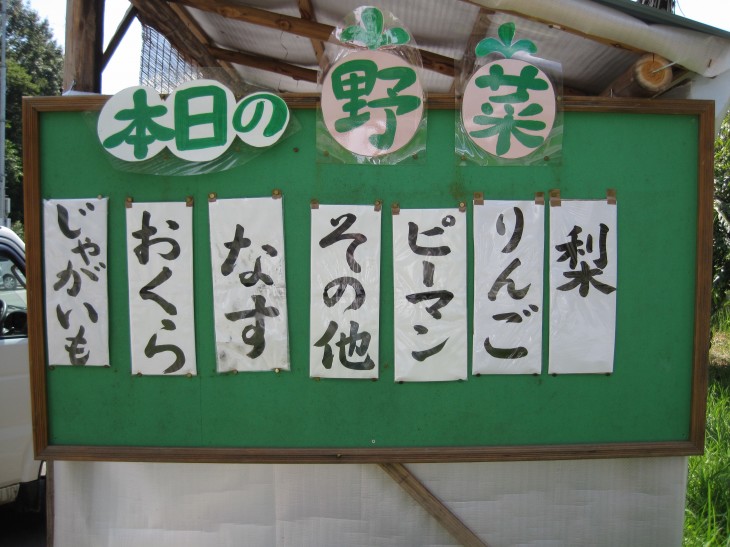 本日の野菜
梨
りんご
ピーマン
その他
なす
おくら
じゃがいも